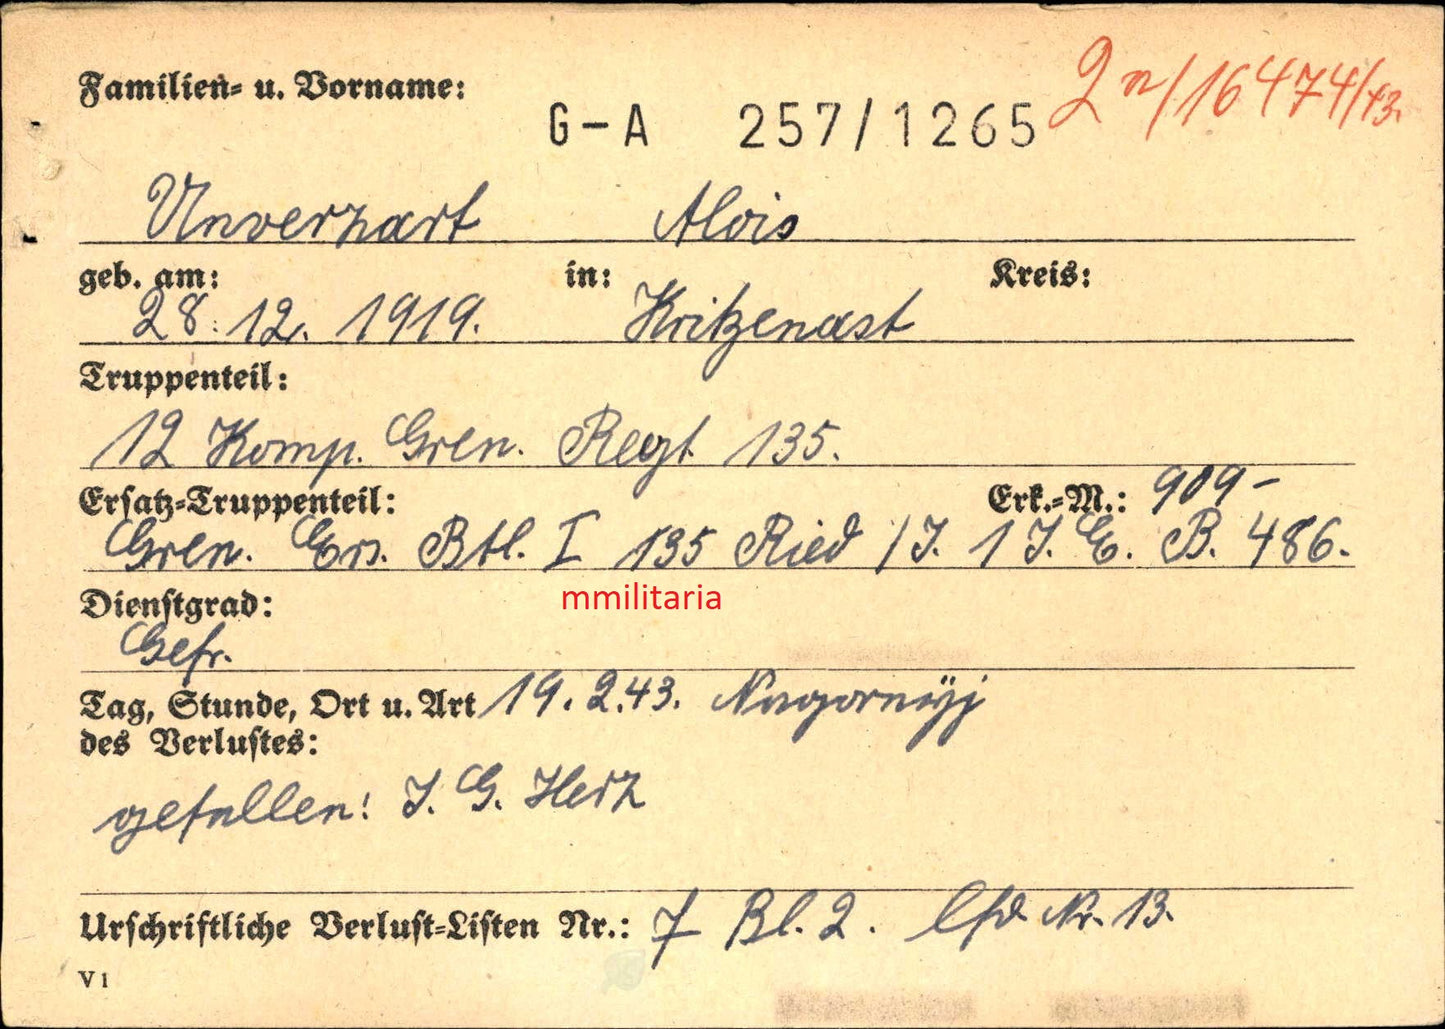 2 n/16474/43.
Familien- u. Vorname:
G-A 257/1265
Unverzart Alois
geb. am: in: Kreis:
28.12. 1919. Kritzenast
Truppenteil:
12 Komp. Gren. Regt 135.
Ersatz-Truppenteil: Erk.-M.: 909-
Gren. Ers. Btl. I 135 Ried /J. 1 J. E. B. 486.
mmilitaria
Dienstgrad:
Gefr.
Tag, Stunde, Ort u. Art 19. 2.43. Nagornyj
des Verlustes:
gefallen: J. G. Herz
Urschriftliche Verlust-Listen Nr.: 7 Bl. 2. lfd Nr. 13.
V 1